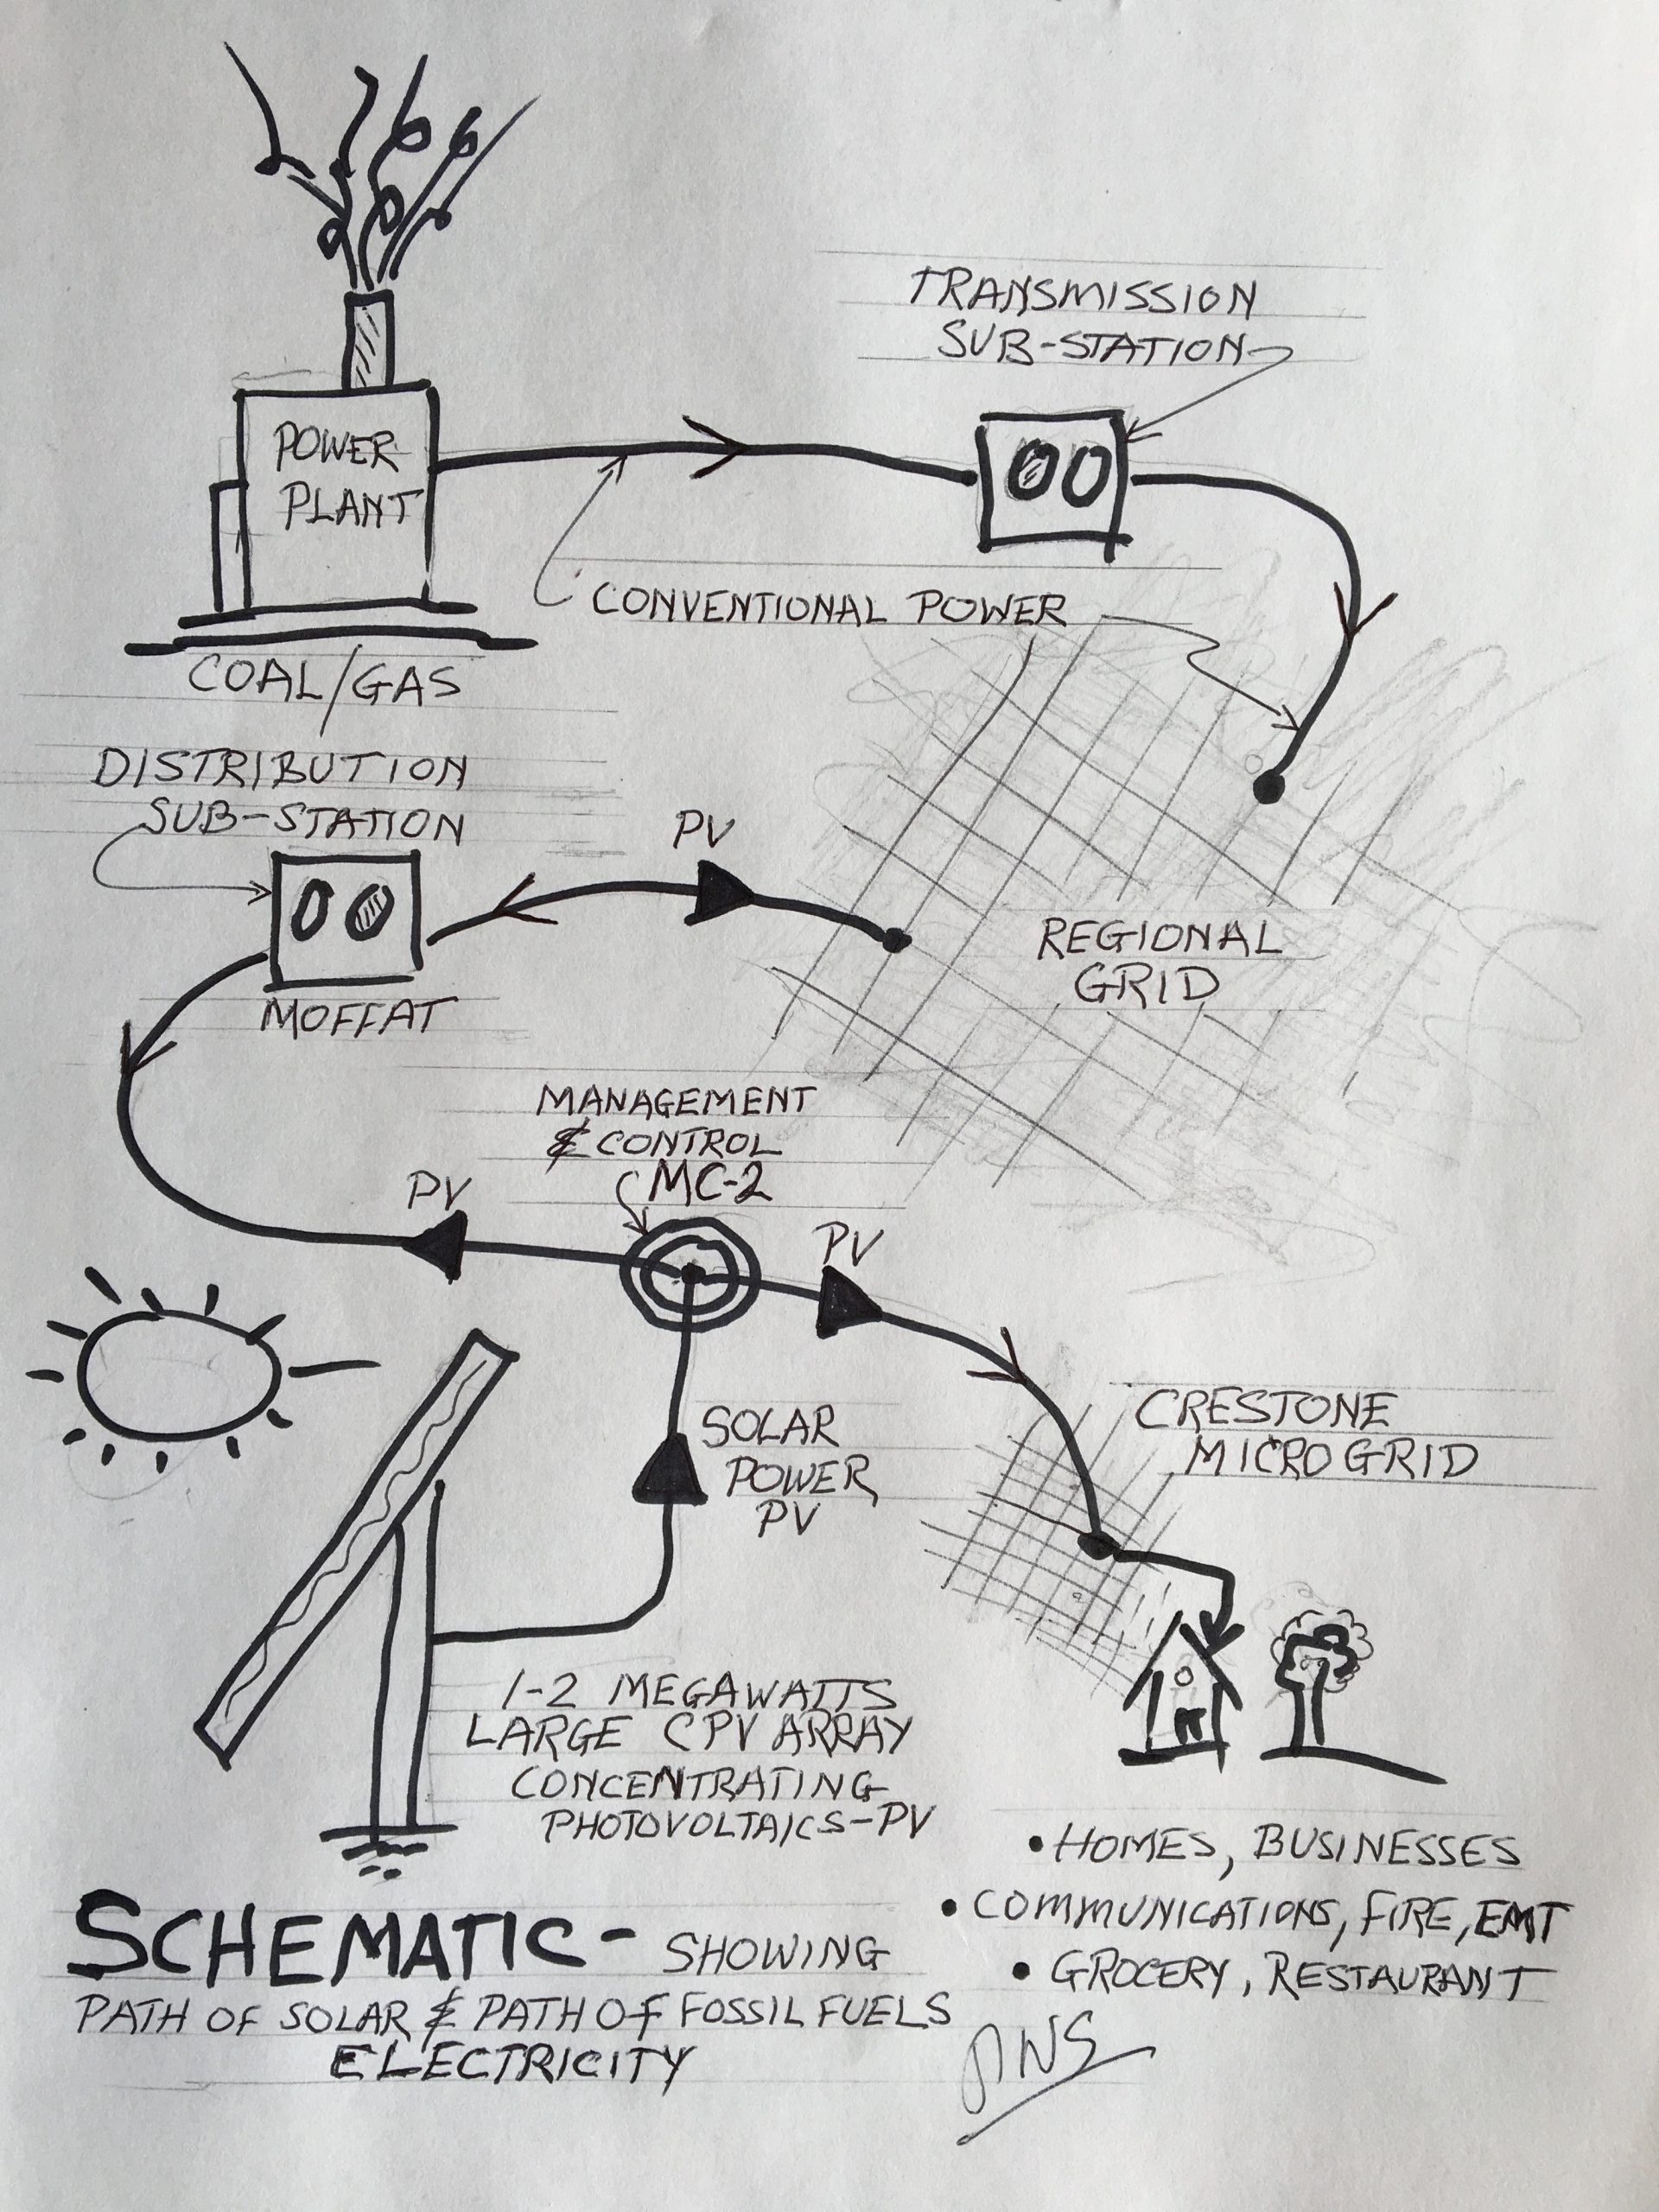 TRANSMISSION
SUB-STATION
POWER
PLANT
CONVENTIONAL POWER
COAL/GAS
DISTRIBUTION
SUB-STATION
PV
REGIONAL
GRID
MOFFAT
MANAGEMENT
& CONTROL
MC-2
PV
PV
CRESTONE
MICROGRID
SOLAR
POWER
PV
1-2 MEGAWATTS
LARGE CPV ARRAY
CONCENTRATING
PHOTOVOLTAICS-PV
• HOMES, BUSINESSES
• COMMUNICATIONS, FIRE, EMT
• GROCERY, RESTAURANT
SCHEMATIC - SHOWING
PATH OF SOLAR & PATH OF FOSSIL FUELS
ELECTRICITY